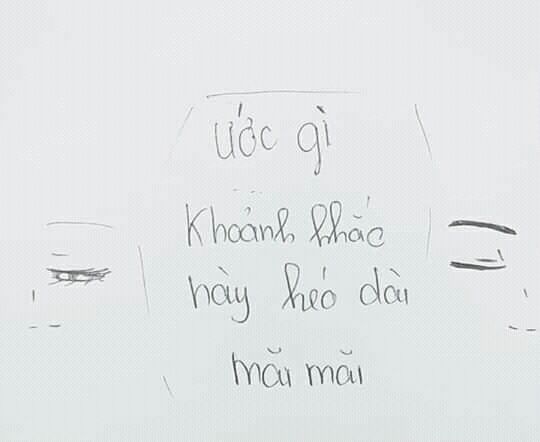 ước gì
Khoảnh khắc
này kéo dài
mãi mãi